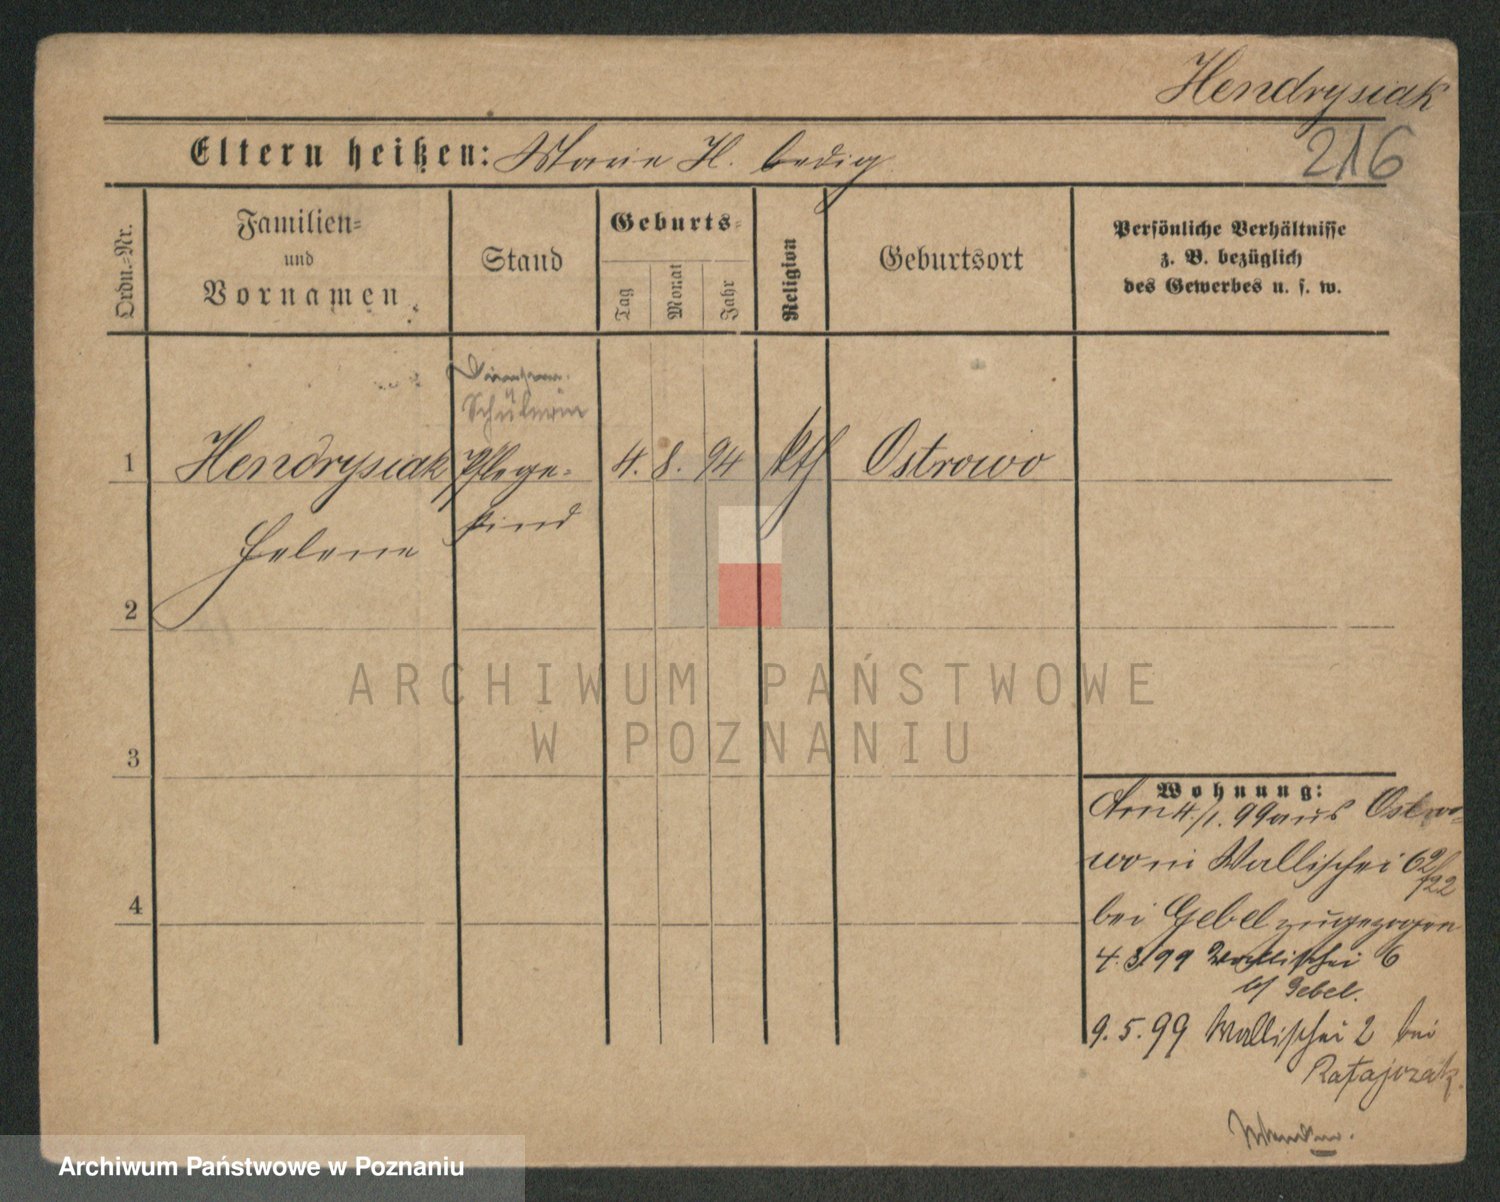 Hendrysiak
216
Eltern heißen: Marie H. ledig
Ordn.-Nr.
Familien-
und
Vornamen
Stand
Geburts-
Tag
Monat
Jahr
Religion
Geburtsort
Persönliche Verhältnisse
z. B. bezüglich
des Gewerbes u. s. w.
Schülerin
1 Hendrysiak Pflege- 4. 8. 94 kth Ostrowo
Helene kind
2
3
4
Wohnung:
Am 4./1. 99 aus Ostro-
wo in Wallischei
bei Gebel zugezogen
4.3.99 Wallischei 6
b/ Gebel.
9.5.99 Wallischei 2 bei
Ratajczak.
ARCHIWUM PAŃSTWOWE
W POZNANIU
Archiwum Państwowe w Poznaniu